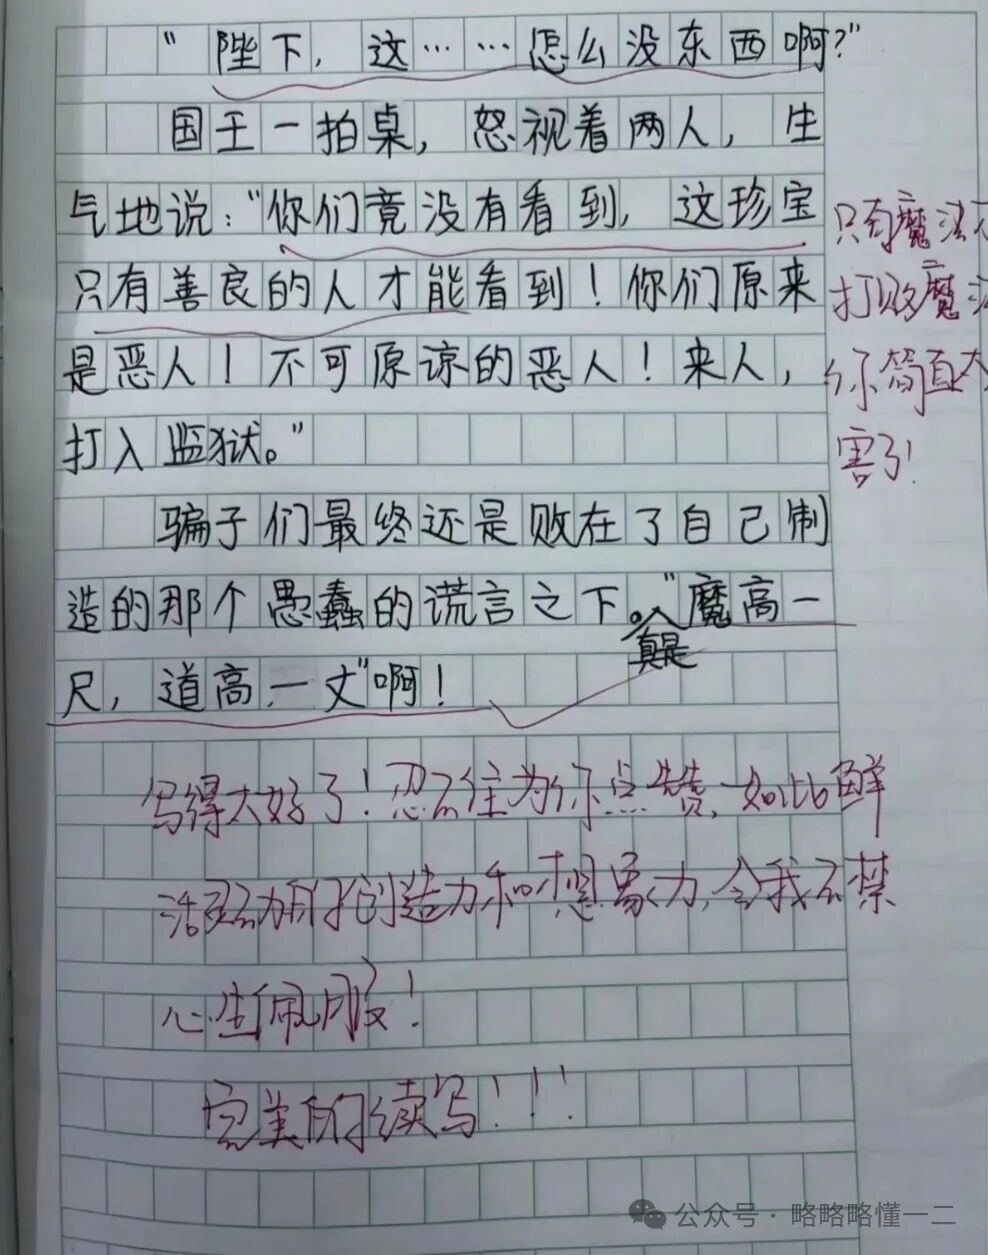 “陛下，这……怎么没东西啊？”
国王一拍桌，怒视着两人，生
气地说：“你们竟没有看到，这珍宝
只有善良的人才能看到！你们原来
是恶人！不可原谅的恶人！来人，
打入监狱。”
骗子们最终还是败在了自己制
造的那个愚蠢的谎言之下。真是“魔高一
尺，道高一丈”啊！
只有魔法
打败魔法
你简直太
害了！
写得太好了！忍不住为你点赞，如此鲜
活灵动的创造力和想象力，令我不禁
心生佩服！
完美的续写！！！
公众号·略略略懂一二